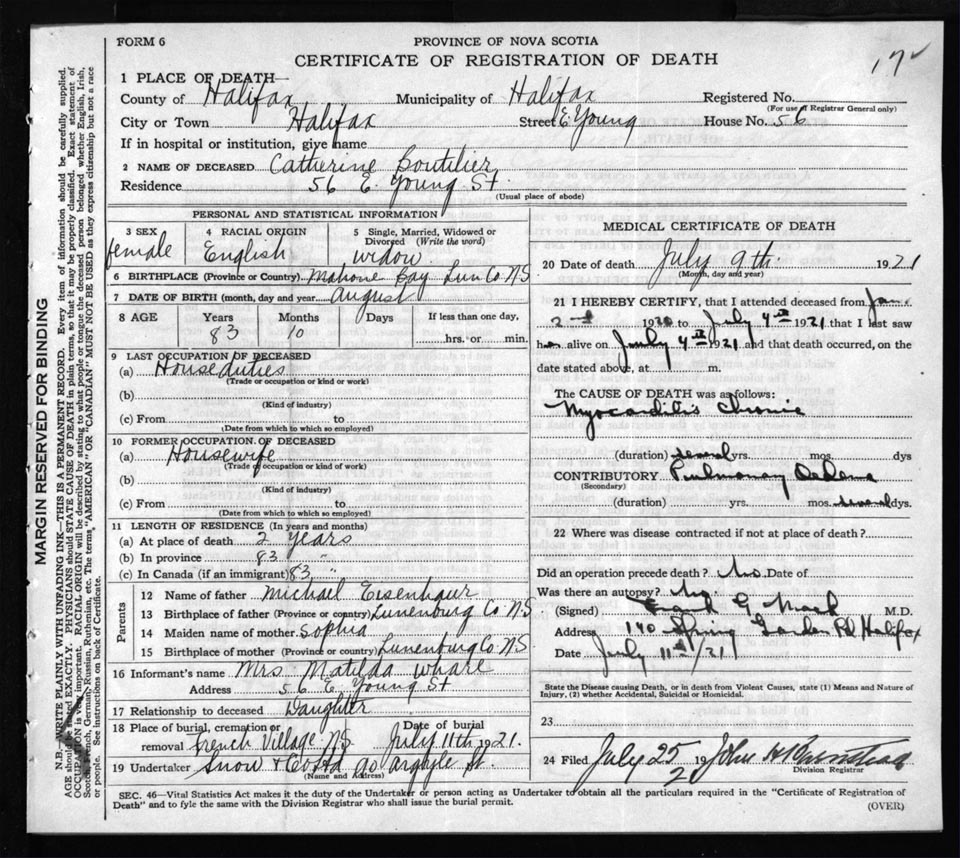 FORM 6
PROVINCE OF NOVA SCOTIA
CERTIFICATE OF REGISTRATION OF DEATH
17
1 PLACE OF DEATH—
County of Halifax Municipality of Halifax Registered No.
(For use of Registrar General only)
City or Town Halifax Street E. Young House No. 56
If in hospital or institution, give name
2 NAME OF DECEASED Catherine Boutilier
Residence 56 E. Young St.
(Usual place of abode)
PERSONAL AND STATISTICAL INFORMATION
3 SEX female
4 RACIAL ORIGIN English
5 Single, Married, Widowed or Divorced (Write the word) widow
6 BIRTHPLACE (Province or Country) Mahone Bay Lun Co NS
7 DATE OF BIRTH (month, day and year) august
8 AGE Years Months Days If less than one day,
83 10 hrs. or min.
9 LAST OCCUPATION OF DECEASED
(a) House duties
(Trade or occupation or kind of work)
(b)
(Kind of industry)
(c) From to
(Date from which to which so employed)
10 FORMER OCCUPATION OF DECEASED
(a) Housewife
(Trade or occupation or kind of work)
(b)
(Kind of industry)
(c) From to
(Date from which to which so employed)
11 LENGTH OF RESIDENCE (In years and months)
(a) At place of death 2 years
(b) In province 83 "
(c) In Canada (if an immigrant) 83 "
Parents
12 Name of father Michael Eisenhaur
13 Birthplace of father (Province or country) Lunenburg Co NS
14 Maiden name of mother Sophia
15 Birthplace of mother (Province or country) Lunenburg Co. NS
16 Informant's name Mrs Matilda
Address 56 E Young St
17 Relationship to deceased Daughter
18 Place of burial, cremation or removal French Village NS Date of burial July 11th 1921.
19 Undertaker Snow & Costa 90 Argyle St.
(Name and Address)
MEDICAL CERTIFICATE OF DEATH
20 Date of death July 9th. 1921
(Month, day and year)
21 I HEREBY CERTIFY, that I attended deceased from Jan.
2nd 1920 to July 4th 1921 that I last saw
h alive on 4th 1921 and that death occurred, on the
date stated above, at m.
The CAUSE OF DEATH was as follows:
Myocarditis Chronic
(duration) several yrs. mos. dys
CONTRIBUTORY Pulmonary Oedema
(Secondary)
(duration) yrs. mos. several dys.
22 Where was disease contracted if not at place of death?
Did an operation precede death? No Date of
Was there an autopsy? No.
(Signed) Frank G. Mack M.D.
Address 140 Spring Garden Rd Halifax
Date July 11th/21
State the Disease causing Death, or in death from Violent Causes, state (1) Means and Nature of
Injury, (2) whether Accidental, Suicidal or Homicidal.
23
24 Filed July 25 1921 John
Division Registrar
SEC. 46—Vital Statistics Act makes it the duty of the Undertaker or person acting as Undertaker to obtain all the particulars required in the "Certificate of Registration of
Death" and to fyle the same with the Division Registrar who shall issue the burial permit.
(OVER)
MARGIN RESERVED FOR BINDING
N.B.—WRITE PLAINLY WITH UNFADING INK—THIS IS A PERMANENT RECORD. Every item of information should be carefully supplied.
AGE should be stated EXACTLY. PHYSICIANS should STATE CAUSE OF DEATH in plain terms, so that it may be properly classified. Exact statement of
OCCUPATION is very important. RACIAL ORIGIN will be described by stating to what people or tongue the deceased person belonged whether English, Irish,
Scotch, French, German, Russian, Ruthenian, etc. The terms "AMERICAN" OR "CANADIAN" MUST NOT BE USED as they express citizenship but not a race
or people. See instructions on back of Certificate.